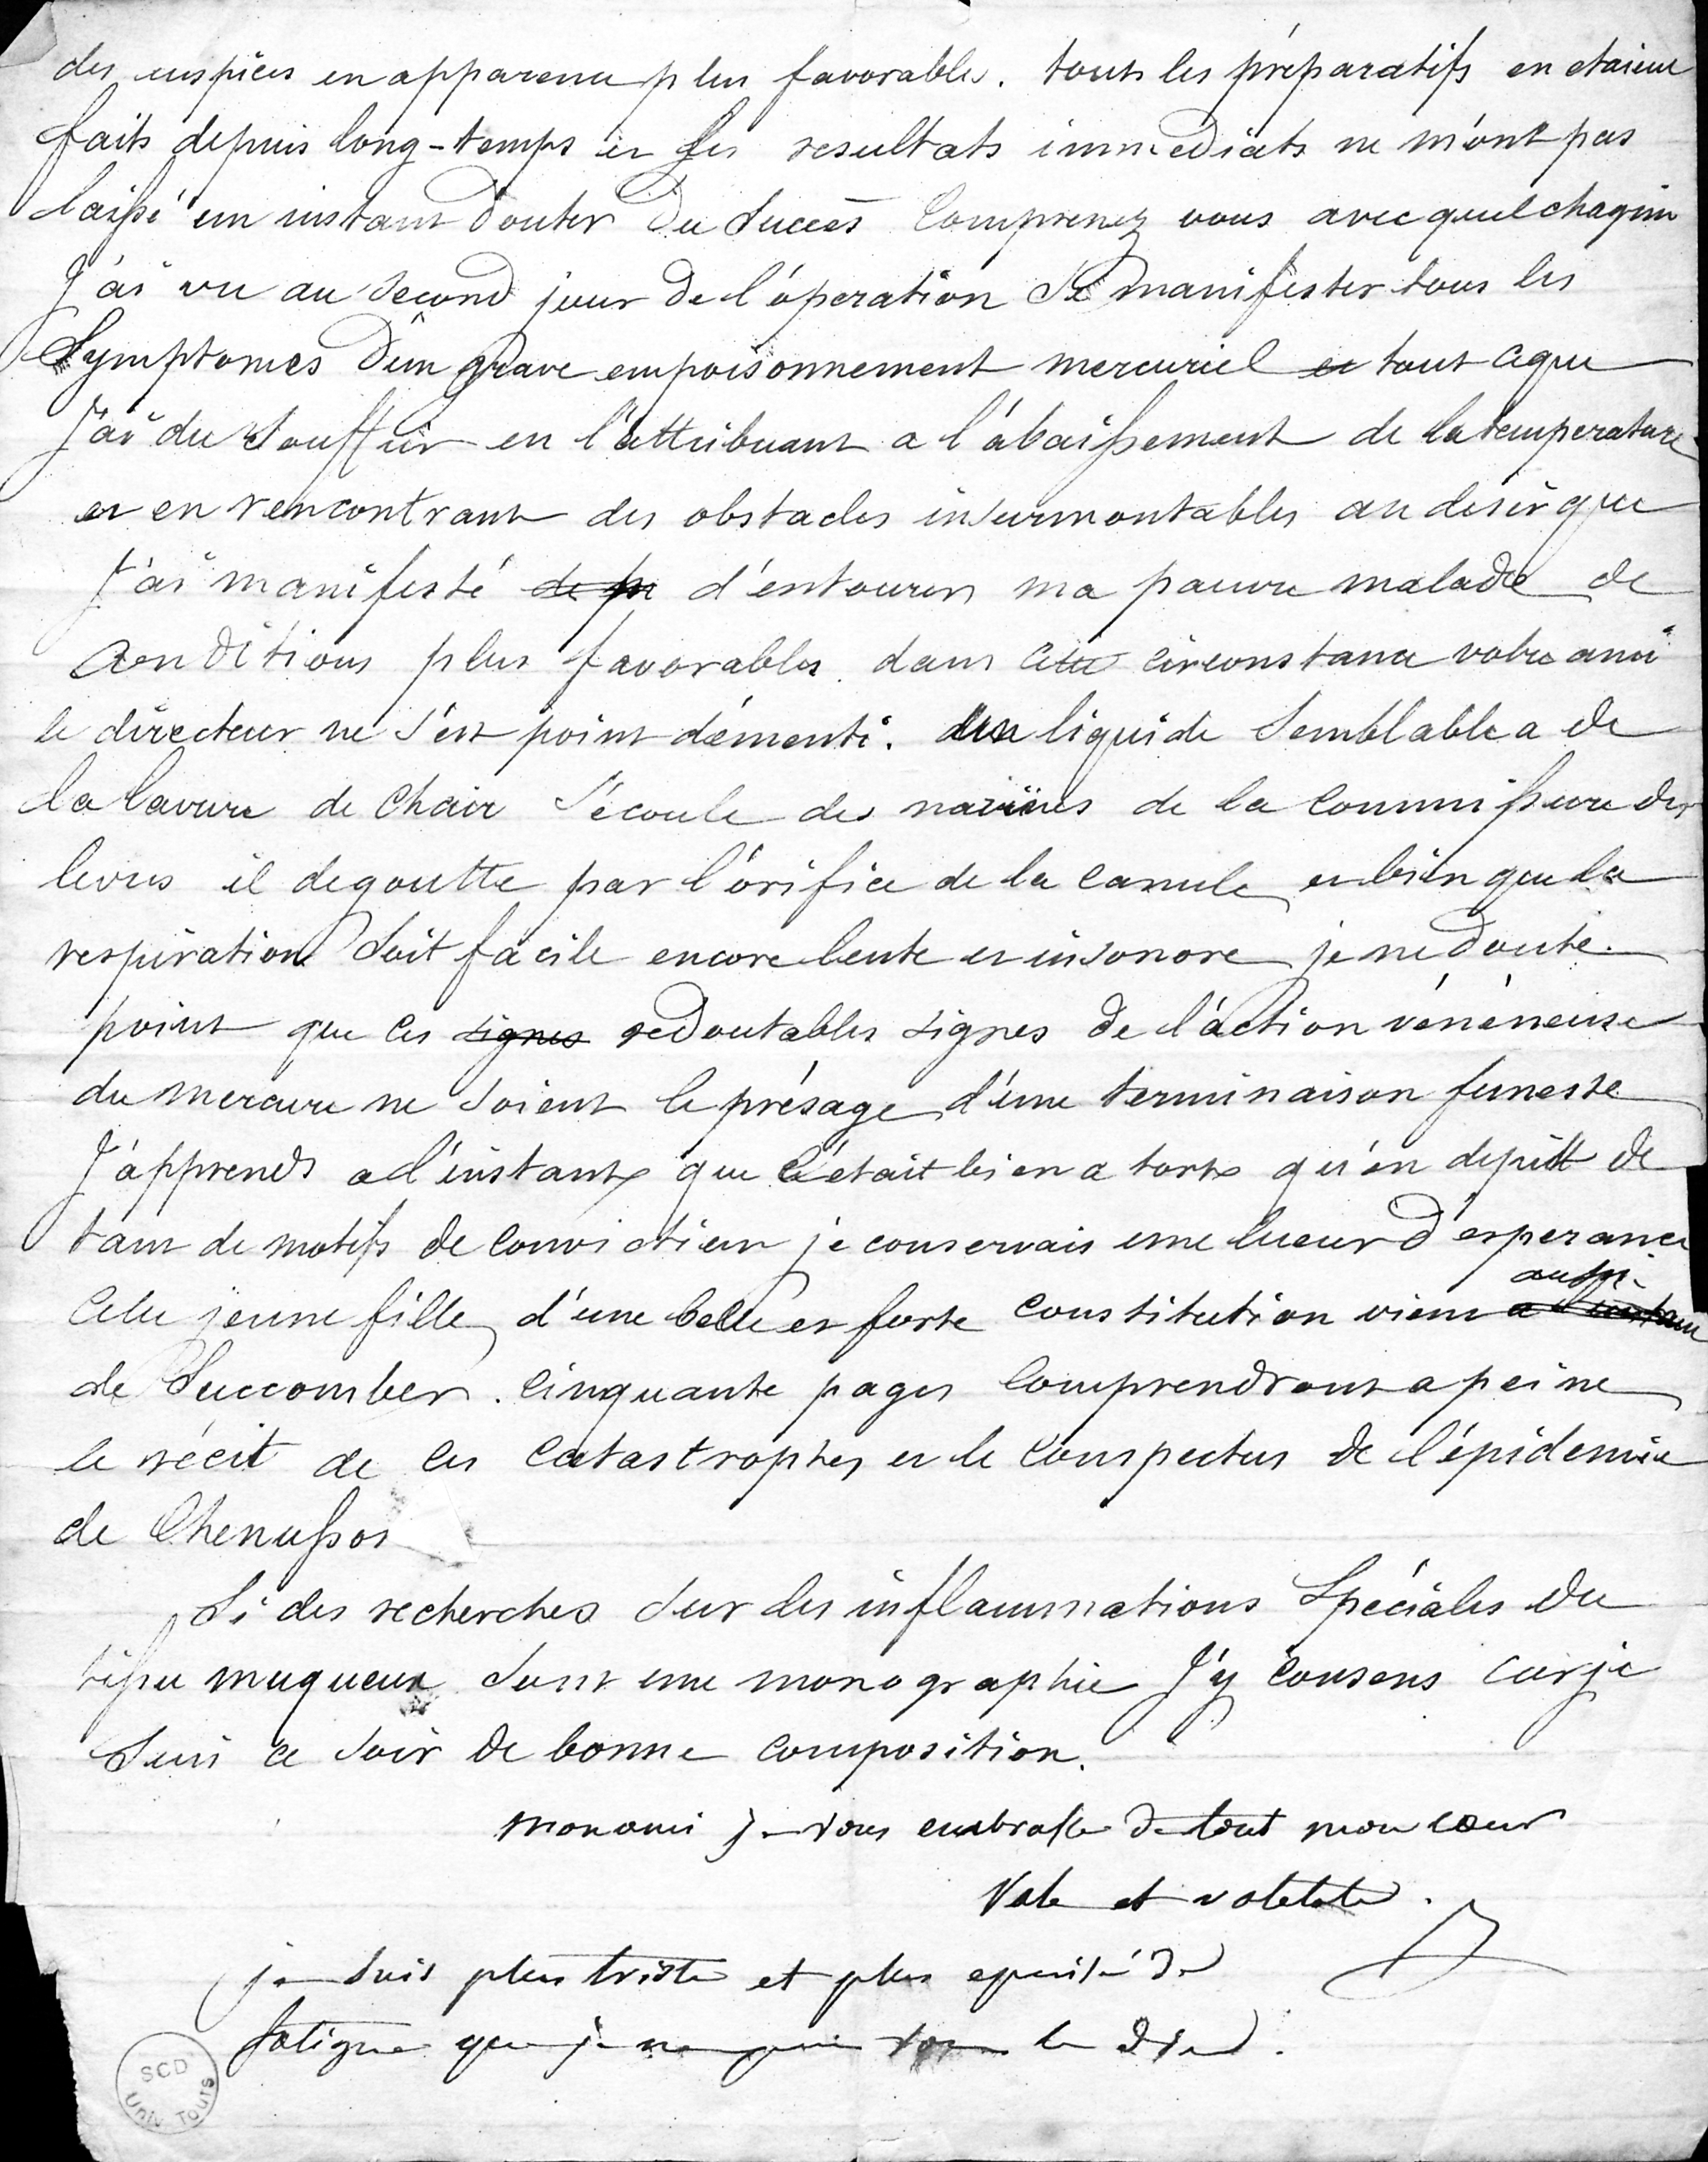 des auspices en apparence plus favorables. tous les préparatifs en etaient
faits depuis long-temps et les resultats immediats ne m'ont pas
laissé un instant douter du succès Comprenez vous avec quel chagrin
J'ai vu au second jour de l'operation se manifester tous les
Symptomes d'un grave empoisonnement mercuriel et tout ceque
J'ai du souffrir en l'attribuant a l'abaissement de la temperature
et en rencontrant des obstacles insurmontables au desir que
J'ai manifesté d'entourer ma pauvre malade de
conditions plus favorables. dans cette circonstance votre ami
le directeur ne s'est point démenti. un liquide semblable a de
la lavure de chair s'écoule des narines de la commissure des
levres il degoutte par l'orifice de la canule et bien que la
respiration soit facile encore lente et insonore je ne doute
point que ces signes redoutables signes de l'action vénéneuse
du mercure ne soient le présage d'une terminaison funeste
J'apprends a l'instant que c'etait bien a tort qu'en depitt de
tant de motifs de conviction je conservais une lueur d'esperance
aussi
Cette jeune fille d'une belle et forte constitution vient a l'instant
de Succomber. Cinquante pages comprendront a peine
le récit de ces catastrophes et le conspectus de l'épidemie
de Chenusson
Si des recherches sur les inflammations Spéciales du
tissu muqueux sont une monographie J'y consens car je
suis ce soir de bonne composition.
mon ami je vous embrasse de tout mon cœur
Vale et valetote.
je suis plus triste et plus epuisé de
fatigue que je ne puis vous le dire.
SCD
Univ Tours